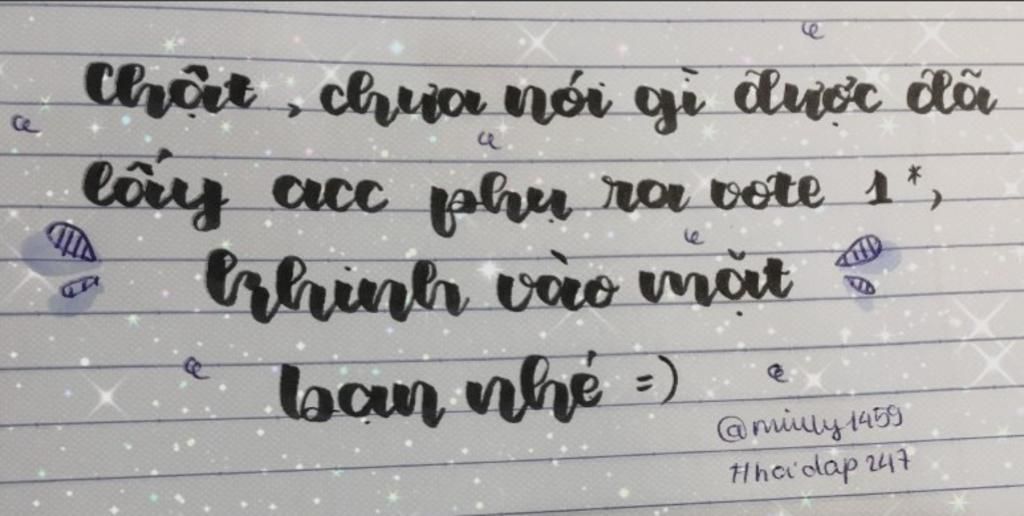 Chật, chưa nói gì được đã
lấy acc phụ ra vote 1*,
khinh vào mặt
bạn nhé =)
@miuly1459
#hoidap247